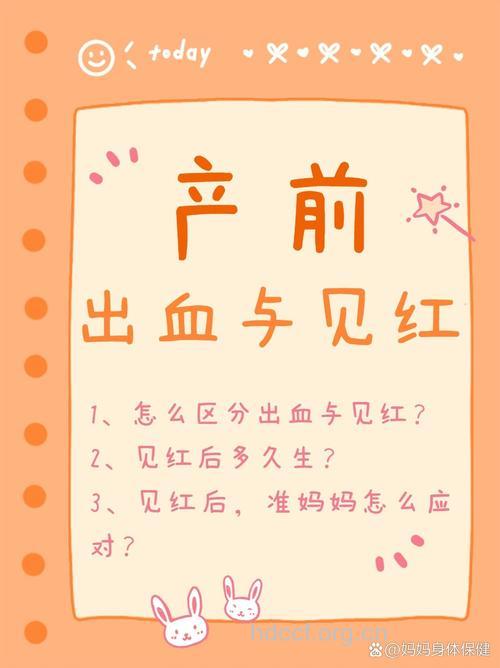 today
产前
出血与见红
1、怎么区分出血与见红?
2、见红后多久生?
3、见红后，准妈妈怎么应
对?
hdccf.org.cn
@妈妈身体保健